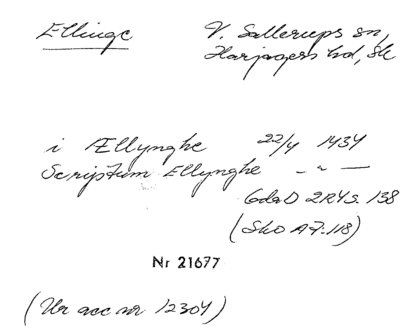 Ellinge
V. Sallerups sn,
Harjagers hd, Sk
i Ællynghe 22/4 1434
Scriptum Ellynghe -"-
GdaD 2R4 s. 138
(Sko A7:118)
Nr 21677
(Ur acc nr 12304)